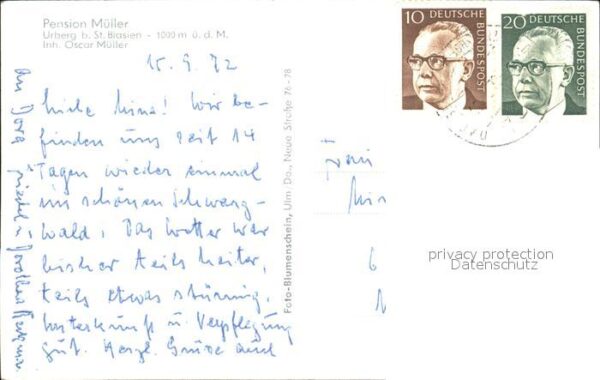 Pension Müller
Urberg b. St. Blasien - 1000 m ü. d. M.
Inh. Oscar Müller
15. 9. 72
Liebe Mina! Wir be-
finden uns seit 14
Tagen wieder einmal
im schönen Schwarz-
wald. Das Wetter war
bisher teils heiter,
teils etwas stürmig,
Unterkunft u. Verpflegung
gut. Herzl. Grüße auch
an Dora
Foto-Blumenschein, Ulm Do., Neue Straße 76-78
10 DEUTSCHE BUNDESPOST
20 DEUTSCHE BUNDESPOST
Frau
6
privacy protection
Datenschutz